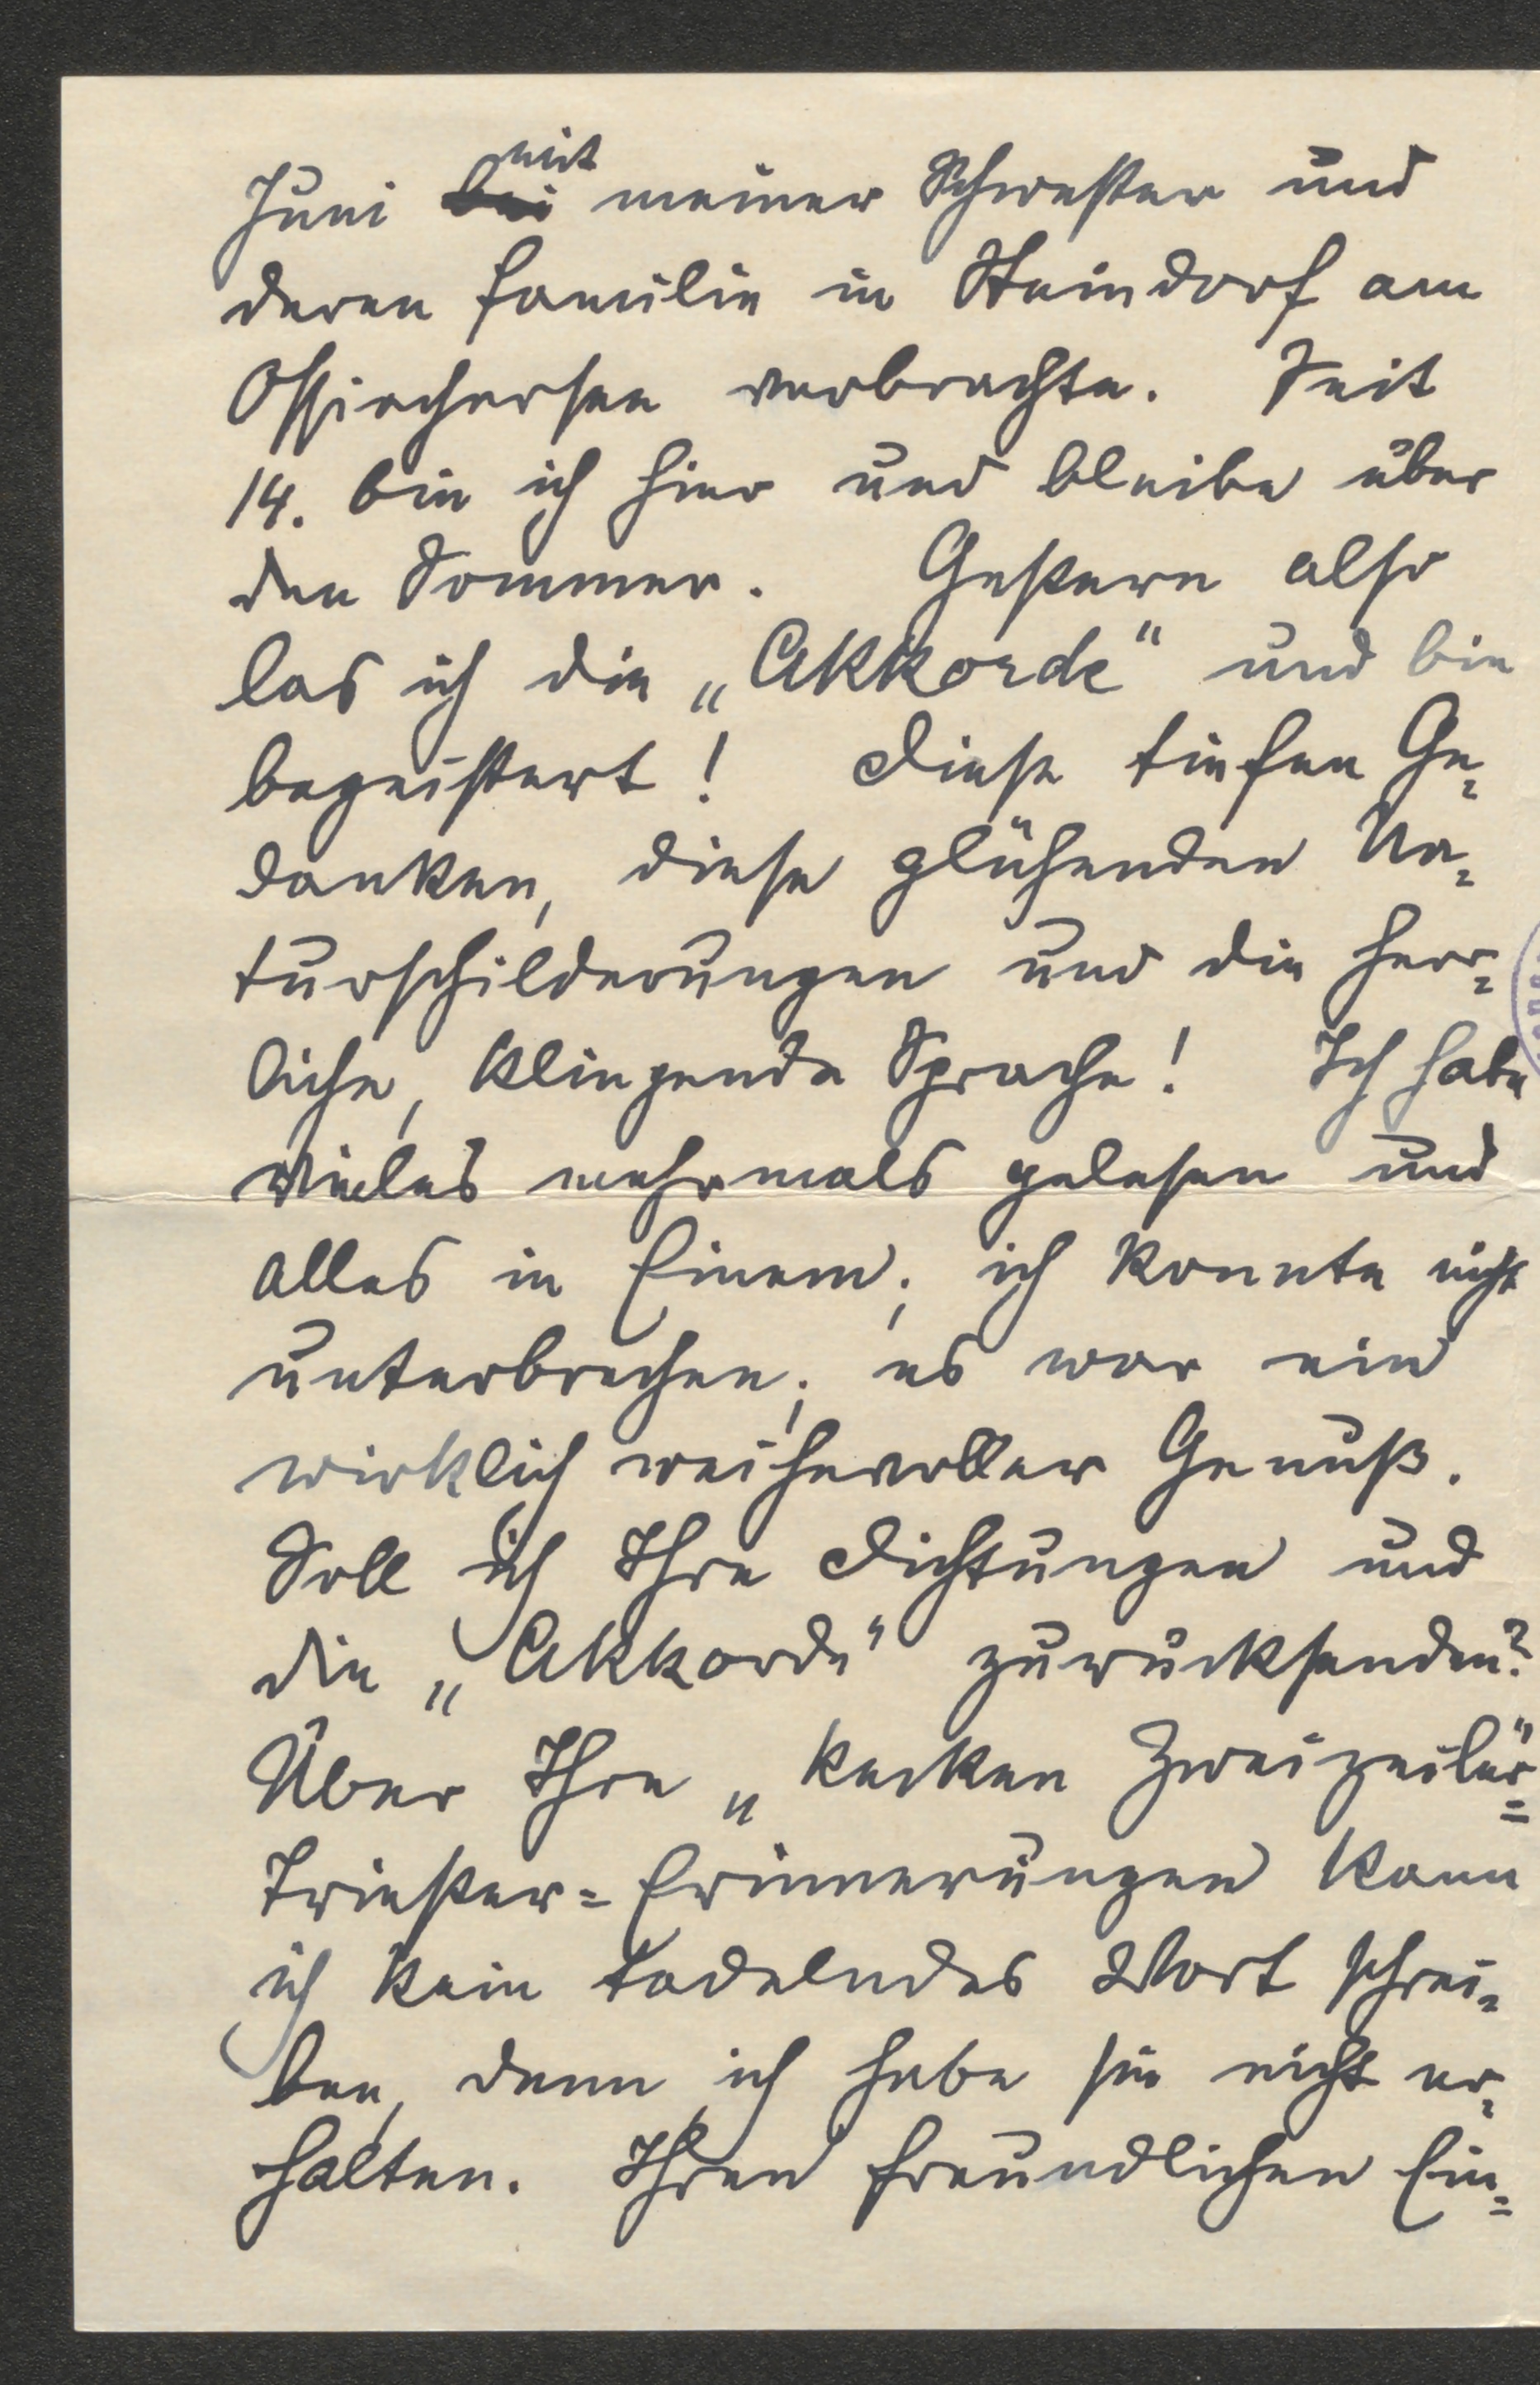 Juni bei mit meiner Schwester und
deren Familie in Steindorf am
Ossiachersee verbrachte. Seit
14. bin ich hier und bleibe über
den Sommer. Gestern also
las ich die „Akkorde" und bin
begeistert! Diese tiefen Ge-
danken, diese glühenden Na-
turschilderungen und die herr-
liche, klingende Sprache! Ich habe
vieles mehrmals gelesen und
alles in Einem; ich konnte nicht
unterbrechen; es war ein
wirklich weihevoller Genuß.
Soll ich Ihre Dichtungen und
die „Akkorde" zurücksenden?
Über Ihre „kecken Zweizeiler"=
Triester=Erinnerungen kann
ich kein tadelndes Wort schrei-
ben, denn ich habe sie nicht er-
halten. Ihren freundlichen Ein-